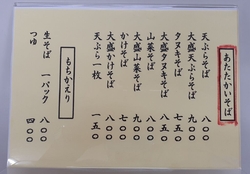 あたたかいそば
天ぷらそば 八〇〇
大盛天ぷらそば 九五〇
タヌキそば 七五〇
大盛タヌキそば
山菜そば
大盛山菜そば 九〇〇
かけそば
大盛かけそば 八〇〇
天ぷら一枚 一五〇
もちかえり
生そば 一パック 八〇〇
つゆ 四〇〇